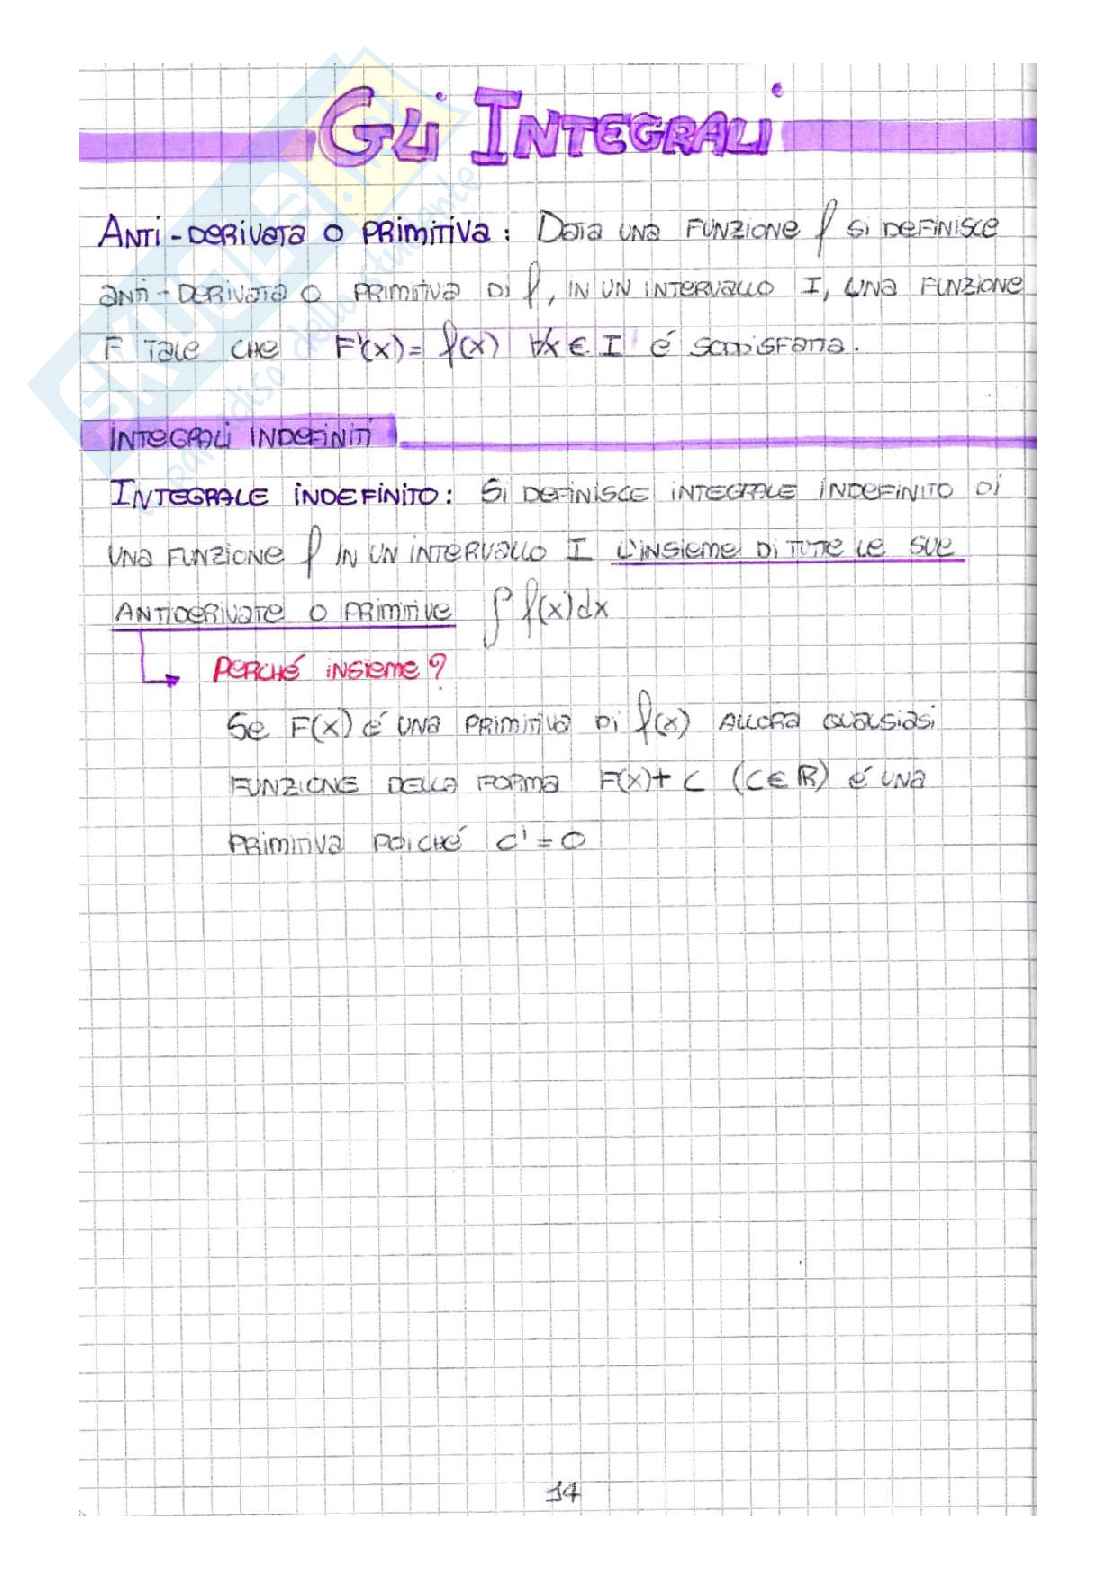 GLi INTEGRALi
ANTi-DERIVATA O PRIMITIVA: DATA UNA FUNZIONE f Si DEFINISCE
ANTi-DERIVATA O PRIMITIVA Di f, IN UN INTERVALLO I, UNA FUNZIONE
F TALE CHE F'(x) = f(x) ∀x ∈ I É SODDISFATTA.
INTEGRALI INDEFINITI
INTEGRALE INDEFINITO: Si DEFINISCE INTEGRALE INDEFINITO Di
UNA FUNZIONE f IN UN INTERVALLO I L'INSIEME Di TUTTE LE SUE
ANTIDERIVATE O PRIMITIVE ∫ f(x)dx
PERCHÉ INSIEME?
SE F(x) É UNA PRIMITIVA Di f(x) ALLORA QUALSIASI
FUNZIONE DELLA FORMA F(x) + C (C ∈ ℝ) É UNA
PRIMITIVA POICHÉ C' = 0
14